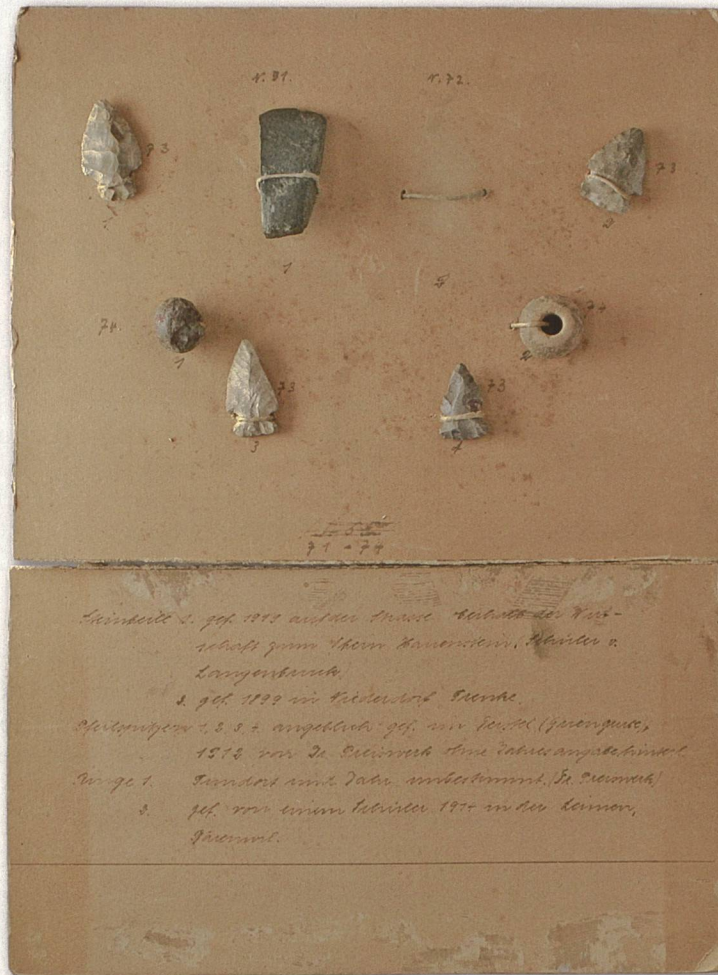 N. 71. N. 72.
73 73
1 2
1 2
74. 74
1 2
73 73
3 4
71 - 74
Steinbeile 1. gef. 1913 auf der Strasse oberhalb der Wirt-
schaft zum obern Hauenstein, Schüler v.
Langenbruck.
2. gef. 1899 in Niederdorf Frenke.
Pfeilspitzen 1, 2, 3, 4 angeblich gef. im
1912 von Dr. Preiswerk ohne Jahresangabe
Ringe 1. Fundort und Jahr unbestimmt. (Dr. Preiswerk)
2. gef. von einem Schüler 1914 in der Leimen,
Bärenwil.